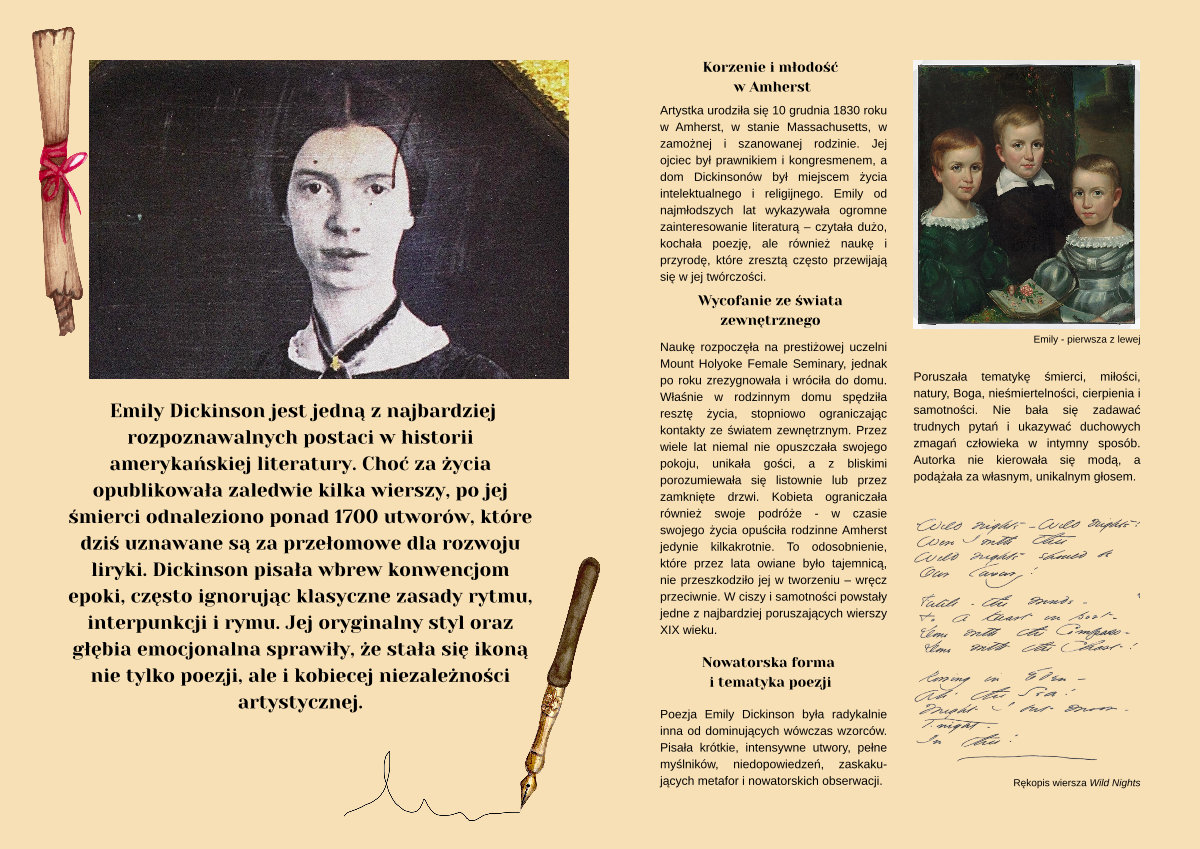 Emily Dickinson jest jedną z najbardziej
rozpoznawalnych postaci w historii
amerykańskiej literatury. Choć za życia
opublikowała zaledwie kilka wierszy, po jej
śmierci odnaleziono ponad 1700 utworów, które
dziś uznawane są za przełomowe dla rozwoju
liryki. Dickinson pisała wbrew konwencjom
epoki, często ignorując klasyczne zasady rytmu,
interpunkcji i rymu. Jej oryginalny styl oraz
głębia emocjonalna sprawiły, że stała się ikoną
nie tylko poezji, ale i kobiecej niezależności
artystycznej.
Korzenie i młodość
w Amherst
Artystka urodziła się 10 grudnia 1830 roku
w Amherst, w stanie Massachusetts, w
zamożnej i szanowanej rodzinie. Jej
ojciec był prawnikiem i kongresmenem, a
dom Dickinsonów był miejscem życia
intelektualnego i religijnego. Emily od
najmłodszych lat wykazywała ogromne
zainteresowanie literaturą – czytała dużo,
kochała poezję, ale również naukę i
przyrodę, które zresztą często przewijają
się w jej twórczości.
Wycofanie ze świata
zewnętrznego
Naukę rozpoczęła na prestiżowej uczelni
Mount Holyoke Female Seminary, jednak
po roku zrezygnowała i wróciła do domu.
Właśnie w rodzinnym domu spędziła
resztę życia, stopniowo ograniczając
kontakty ze światem zewnętrznym. Przez
wiele lat niemal nie opuszczała swojego
pokoju, unikała gości, a z bliskimi
porozumiewała się listownie lub przez
zamknięte drzwi. Kobieta ograniczała
również swoje podróże - w czasie
swojego życia opuściła rodzinne Amherst
jedynie kilkakrotnie. To odosobnienie,
które przez lata owiane było tajemnicą,
nie przeszkodziło jej w tworzeniu – wręcz
przeciwnie. W ciszy i samotności powstały
jedne z najbardziej poruszających wierszy
XIX wieku.
Nowatorska forma
i tematyka poezji
Poezja Emily Dickinson była radykalnie
inna od dominujących wówczas wzorców.
Pisała krótkie, intensywne utwory, pełne
myślników, niedopowiedzeń, zaskaku-
jących metafor i nowatorskich obserwacji.
Emily - pierwsza z lewej
Poruszała tematykę śmierci, miłości,
natury, Boga, nieśmiertelności, cierpienia i
samotności. Nie bała się zadawać
trudnych pytań i ukazywać duchowych
zmagań człowieka w intymny sposób.
Autorka nie kierowała się modą, a
podążała za własnym, unikalnym głosem.
Wild nights - Wild nights!
Were I with thee
Wild nights should be
Our luxury!
Futile - the winds -
To a Heart in port -
Done with the Compass -
Done with the Chart!
Rowing in Eden -
Ah - the Sea!
Might I but moor -
Tonight -
In thee!
Rękopis wiersza Wild Nights